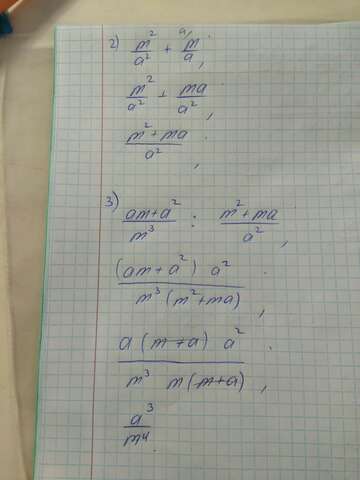 2) m²/a² + m/a (a/ ;
m²/a² + ma/a² ;
(m² + ma)/a² ;
3) (am+a²)/m³ : (m²+ma)/a² ;
(am+a²) a² / m³(m²+ma) ;
a(m+a) a² / m³ m(m+a) ;
a³/m⁴.